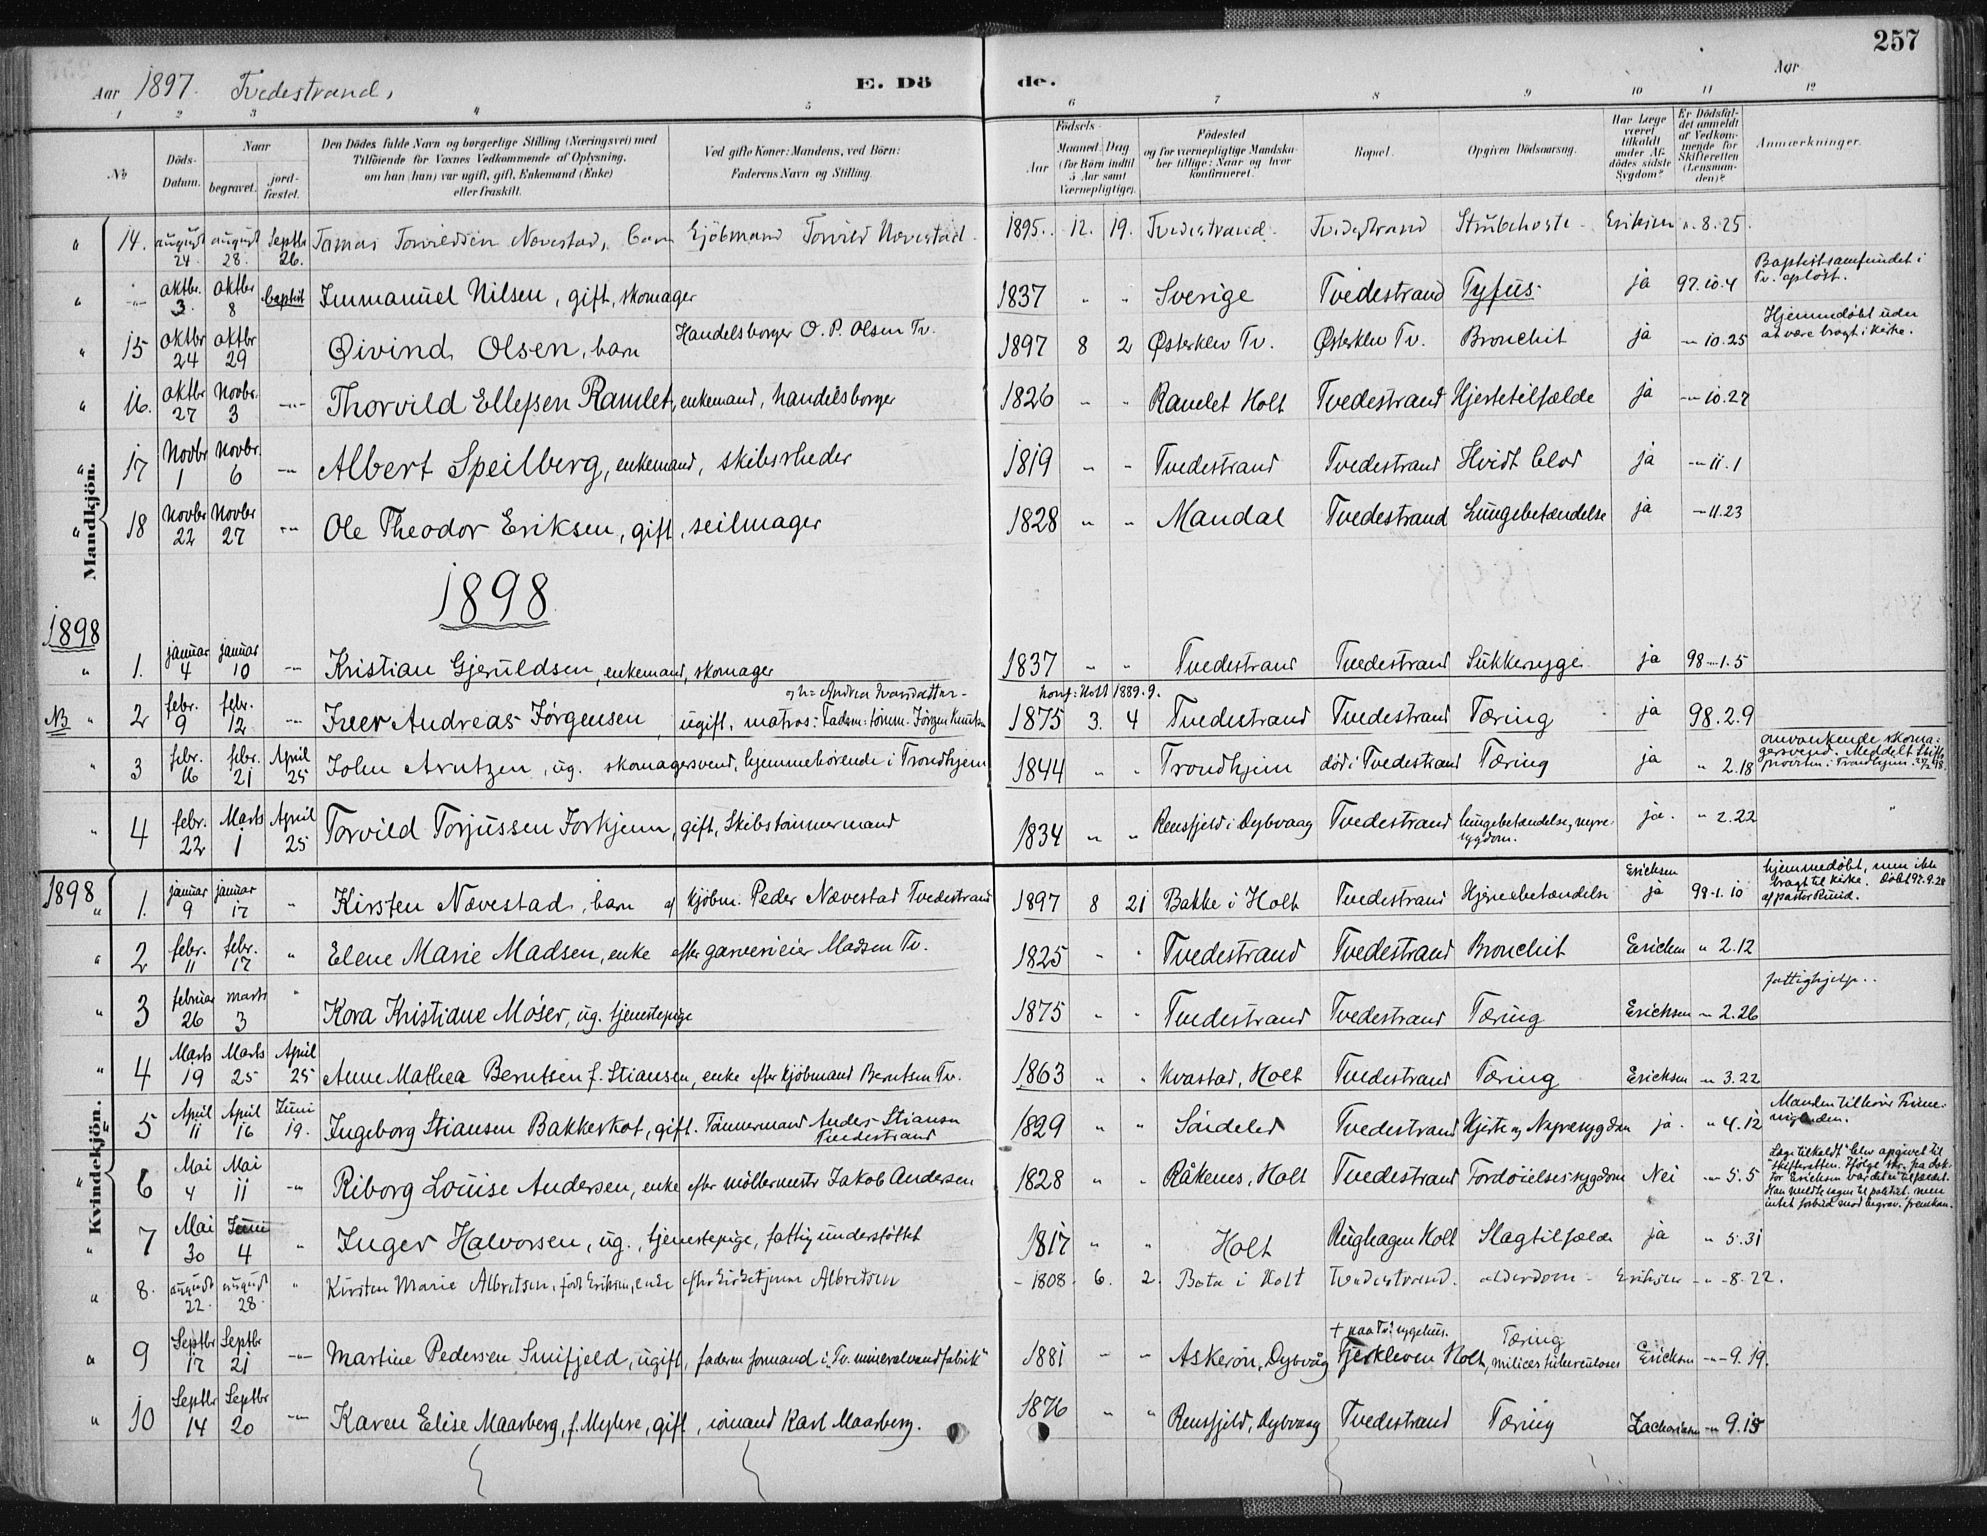 257
Aar 1897. Tvedestrand, E. Dö de. Aar
1 2 3 4 5 6 7 8 9 10 11 12
No Döds-Datum. Naar begravet. jord-fæstet. Den Dödes fulde Navn og borgerlige Stilling (Næringsvei) med Tilföiende for Voxnes Vedkommende af Oplysning, om han (hun) var ugift, gift, Enkemand (Enke) eller fraskilt. Ved gifte Koner: Mandens, ved Börn: Faderens Navn og Stilling. Födsels- Aar Maaned. Dag (for Börn indtil 5 Aar samt Værnepligtige). Födested og for værnepligtige Mandskaber tillige: Naar og hvor konfirmeret. Bopæl. Opgiven Dödsaarsag. Har Læge været tilkaldt under Afdödes sidste Sygdom? Er Dödsfaldet anmeldt af Vedkommende for Skifteretten (Lensmanden)? Anmærkninger.
Mandkjön.
" 14. august 24. august 28. Septbr 26. Tomas Torvildsen Nævestad, barn Kjöbmand Torvild Nævestad 1895. 12. 19. Tvedestrand. Tvedestrand Strubehoste Eriksen " 8.25.
" -"- oktbr. 3 oktbr 8 baptist Immanuel Nilsen, gift, skomager 1837 " " Sverige Tvedestrand Tyfus ja 97.10.4 Baptistsamfundet i Tv. opløst.
" 15 oktbr 24 oktbr 29 Øivind Olsen, barn Handelsborger O. P. Olsen Tv. 1897 8 2 Østerklev Tv. Østerklev Tv. Bronchit ja -"- 10.25 Hjemmedøbt uden at være bragt i kirke.
" 16. oktbr 27 Novbr. 3 -"- Thorvild Ellefsen Ramlet, enkemand, handelsborger 1826 " " Ramlet Holt Tvedestrand Hjertetilfælde ja -"- 10.27
" 17 Novbr 1 Novbr. 6 -"- Albert Speilberg, enkemand, skibsrheder 1819 " " Tvedestrand Tvedestrand Hvidt blod ja -"- 11.1
" 18 Novbr 22 Novbr 27 -"- Ole Theodor Eriksen, gift, seilmager 1828 " " Mandal Tvedestrand Lungebetændelse ja -"- 11.23
1898
1898
" 1. januar 4 januar 10 -"- Kristian Gjeruldsen, enkemand, skomager 1837 " " Tvedestrand Tvedestrand Sukkersyge ja 98-1.5
og h= Andrea Ivarsdatter- konf: Holt 1889.9.
NB " 2 febr. 9 febr. 12 -"- Iver Andreas Jørgensen, ugift, matros: Fadern: tömm. Jørgen Knutsen 1875 3. 4 Tvedestrand Tvedestrand Tæring ja 98.2.9
" 3 febr. 16 febr. 21 April 25 John Arntzen, ug. skomagersvend, hjemmehörende i Trondhjem 1844 " " Trondhjem död i Tvedestrand Tæring ja " 2.18 omvankende skomagersvend. Meddelt Stiftsprovsten i Trondhjem.
" 4 febr. 22 Marts 1 April 25 Torvild Torjussen Forkjenn, gift, Skibstömmermand 1834 " " Rensfjeld i Dybvaag Tvedestrand lungebetændelse, nyresygdom. ja. " 2.22
Kvindekjön.
1898 " 1. januar 9 januar 17 " Kirsten Nævestad, barn af kjöbm. Peder Nævestad Tvedestrand 1897 8 21 Bakke i Holt Tvedestrand Hjernebetændelse Ericksen ja 98-1.10 hjemmedøbt, men ikke bragt til kirke. Døbt 97.9.28 af pastor Ruud.
" 2 febr. 11 febr. 17 " Elene Marie Madsen, enke efter garverieier Madsen Tv. 1825 " " Tvedestrand Tvedestrand Bronchit Ericksen " 2.12
" 3 februar 26 marts 3 " Kora Kristiane Möser, ug. tjenestepige 1875 " " Tvedestrand Tvedestrand Tæring Ericksen " 2.26 fattighjelp.
" 4 Marts 19 Marts 25 April 25 Anne Mathea Berntsen f. Stiansen, enke efter kjöbmand Berntsen Tv. 1863 " " Kvastad, Holt Tvedestrand Tæring Ericksen " 3.22
" 5 April 11 April 16 Juni 19. Ingeborg Stiansen Bakkeskot, gift. Tömmermand Anders Stiansen Tvedestrand 1829 " " Söndeled Tvedestrand Hjerte og Nyresygdom ja. " 4.12 Manden tilhører Frimenigheden.
" 6 Mai 4 Mai 11 -"- Riborg Louise Andersen, enke efter möllermestr Jakob Andersen 1828 " " Råkenes, Holt Tvedestrand Fordöielsessygdom Nei -"- 5.5 Læge tilkaldt" blev opgivet til skifteretten. Ifølge skr. fra doktor Ericksen var det ei tilfældet. Han meldte sagen til politiet, men intet forbud mod begrav. fremkom.
" 7 Mai 30 Juni 4 " Inger Halvorsen, ug., tjenestepige, fattigunderstöttet 1817 " " Holt Rughagen Holt Slagtilfælde ja " 5.31
" 8. august 22. august 28. " Kirsten Marie Albretsen, födt Eriksen, enke efter Albretsen - 1808 6. 2. Bota i Holt Tvedestrand. alderdom - Eriksen -"- 8.22.
" 9 Septbr 17 Septbr 21 -"- Martine Pedersen Smifjeld, ugift, faderen formand i "Tv. mineralvandfabrik" 1881 " " Askerön, Dybvåg + paa Tv. sygehus. Fjerkleven Holt, Tæring miliærtuberculoses Ericksen -"- 9.19.
" 10 Septbr 14 Septbr 20 -"- Karen Elise Maarberg, f. Myhre, gift, sömand Karl Maarberg. 1876 " " Rensfjeld, Dybvaag Tvedestrand Tæring Zachariasen -"- 9.15